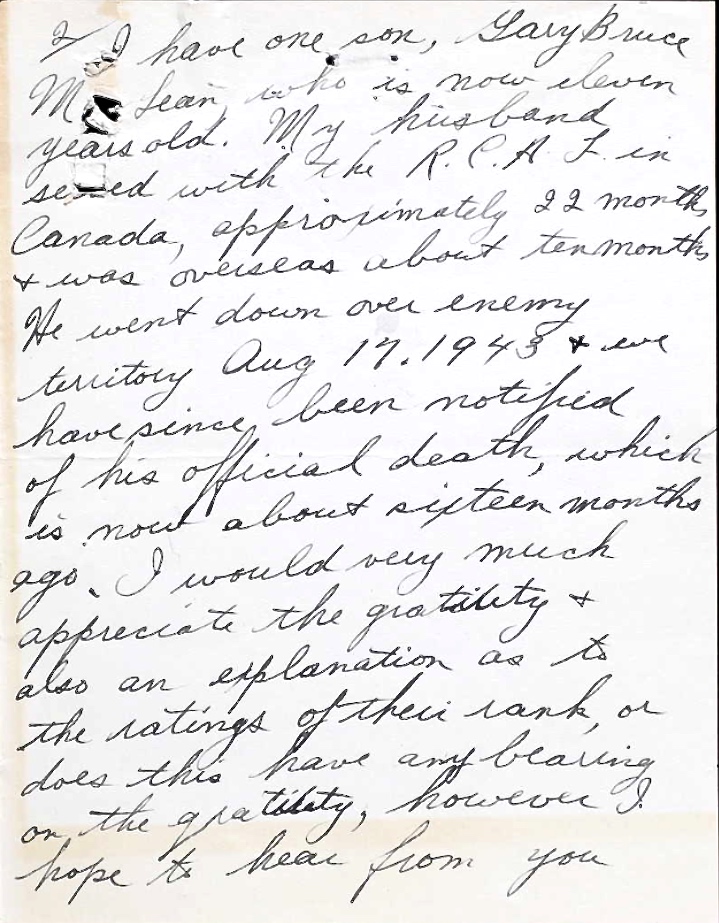 2/ I have one son, Gary Bruce
Mc Lean, who is now eleven
years old. My husband
served with the R.C.A.F. in
Canada, approximately 22 months
& was overseas about ten months
He went down over enemy
territory Aug 17, 1943 & we
have since been notified
of his official death, which
is now about sixteen months
ago. I would very much
appreciate the gratility &
also an explanation as to
the ratings of their rank, or
does this have any bearing
on the gratility, however I
hope to hear from you